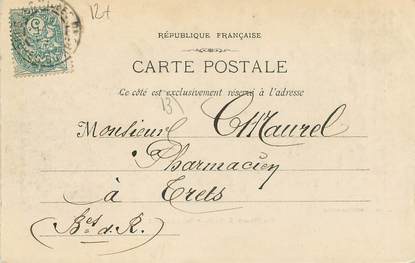 12t
RÉPUBLIQUE FRANÇAISE
CARTE POSTALE
Ce côté est exclusivement réservé à l'adresse
13
Monsieur C Maurel
Pharmacien
à Trets
(Bes d. R.)